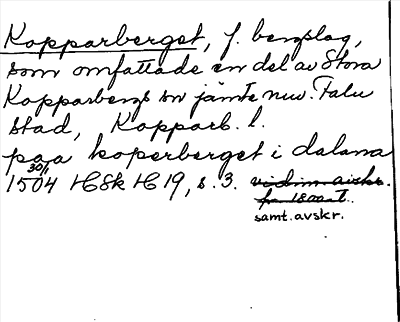 Kopparberget, f. bergslag,
som omfattade en del av Stora
Kopparbergs sn jämte nuv. Falu
stad, Kopparb. l.
paa koperberget i dalana
30/1
1504 HSk H 19, s. 3. vidim. avskr.
fr. 1800-t.
samt. avskr.